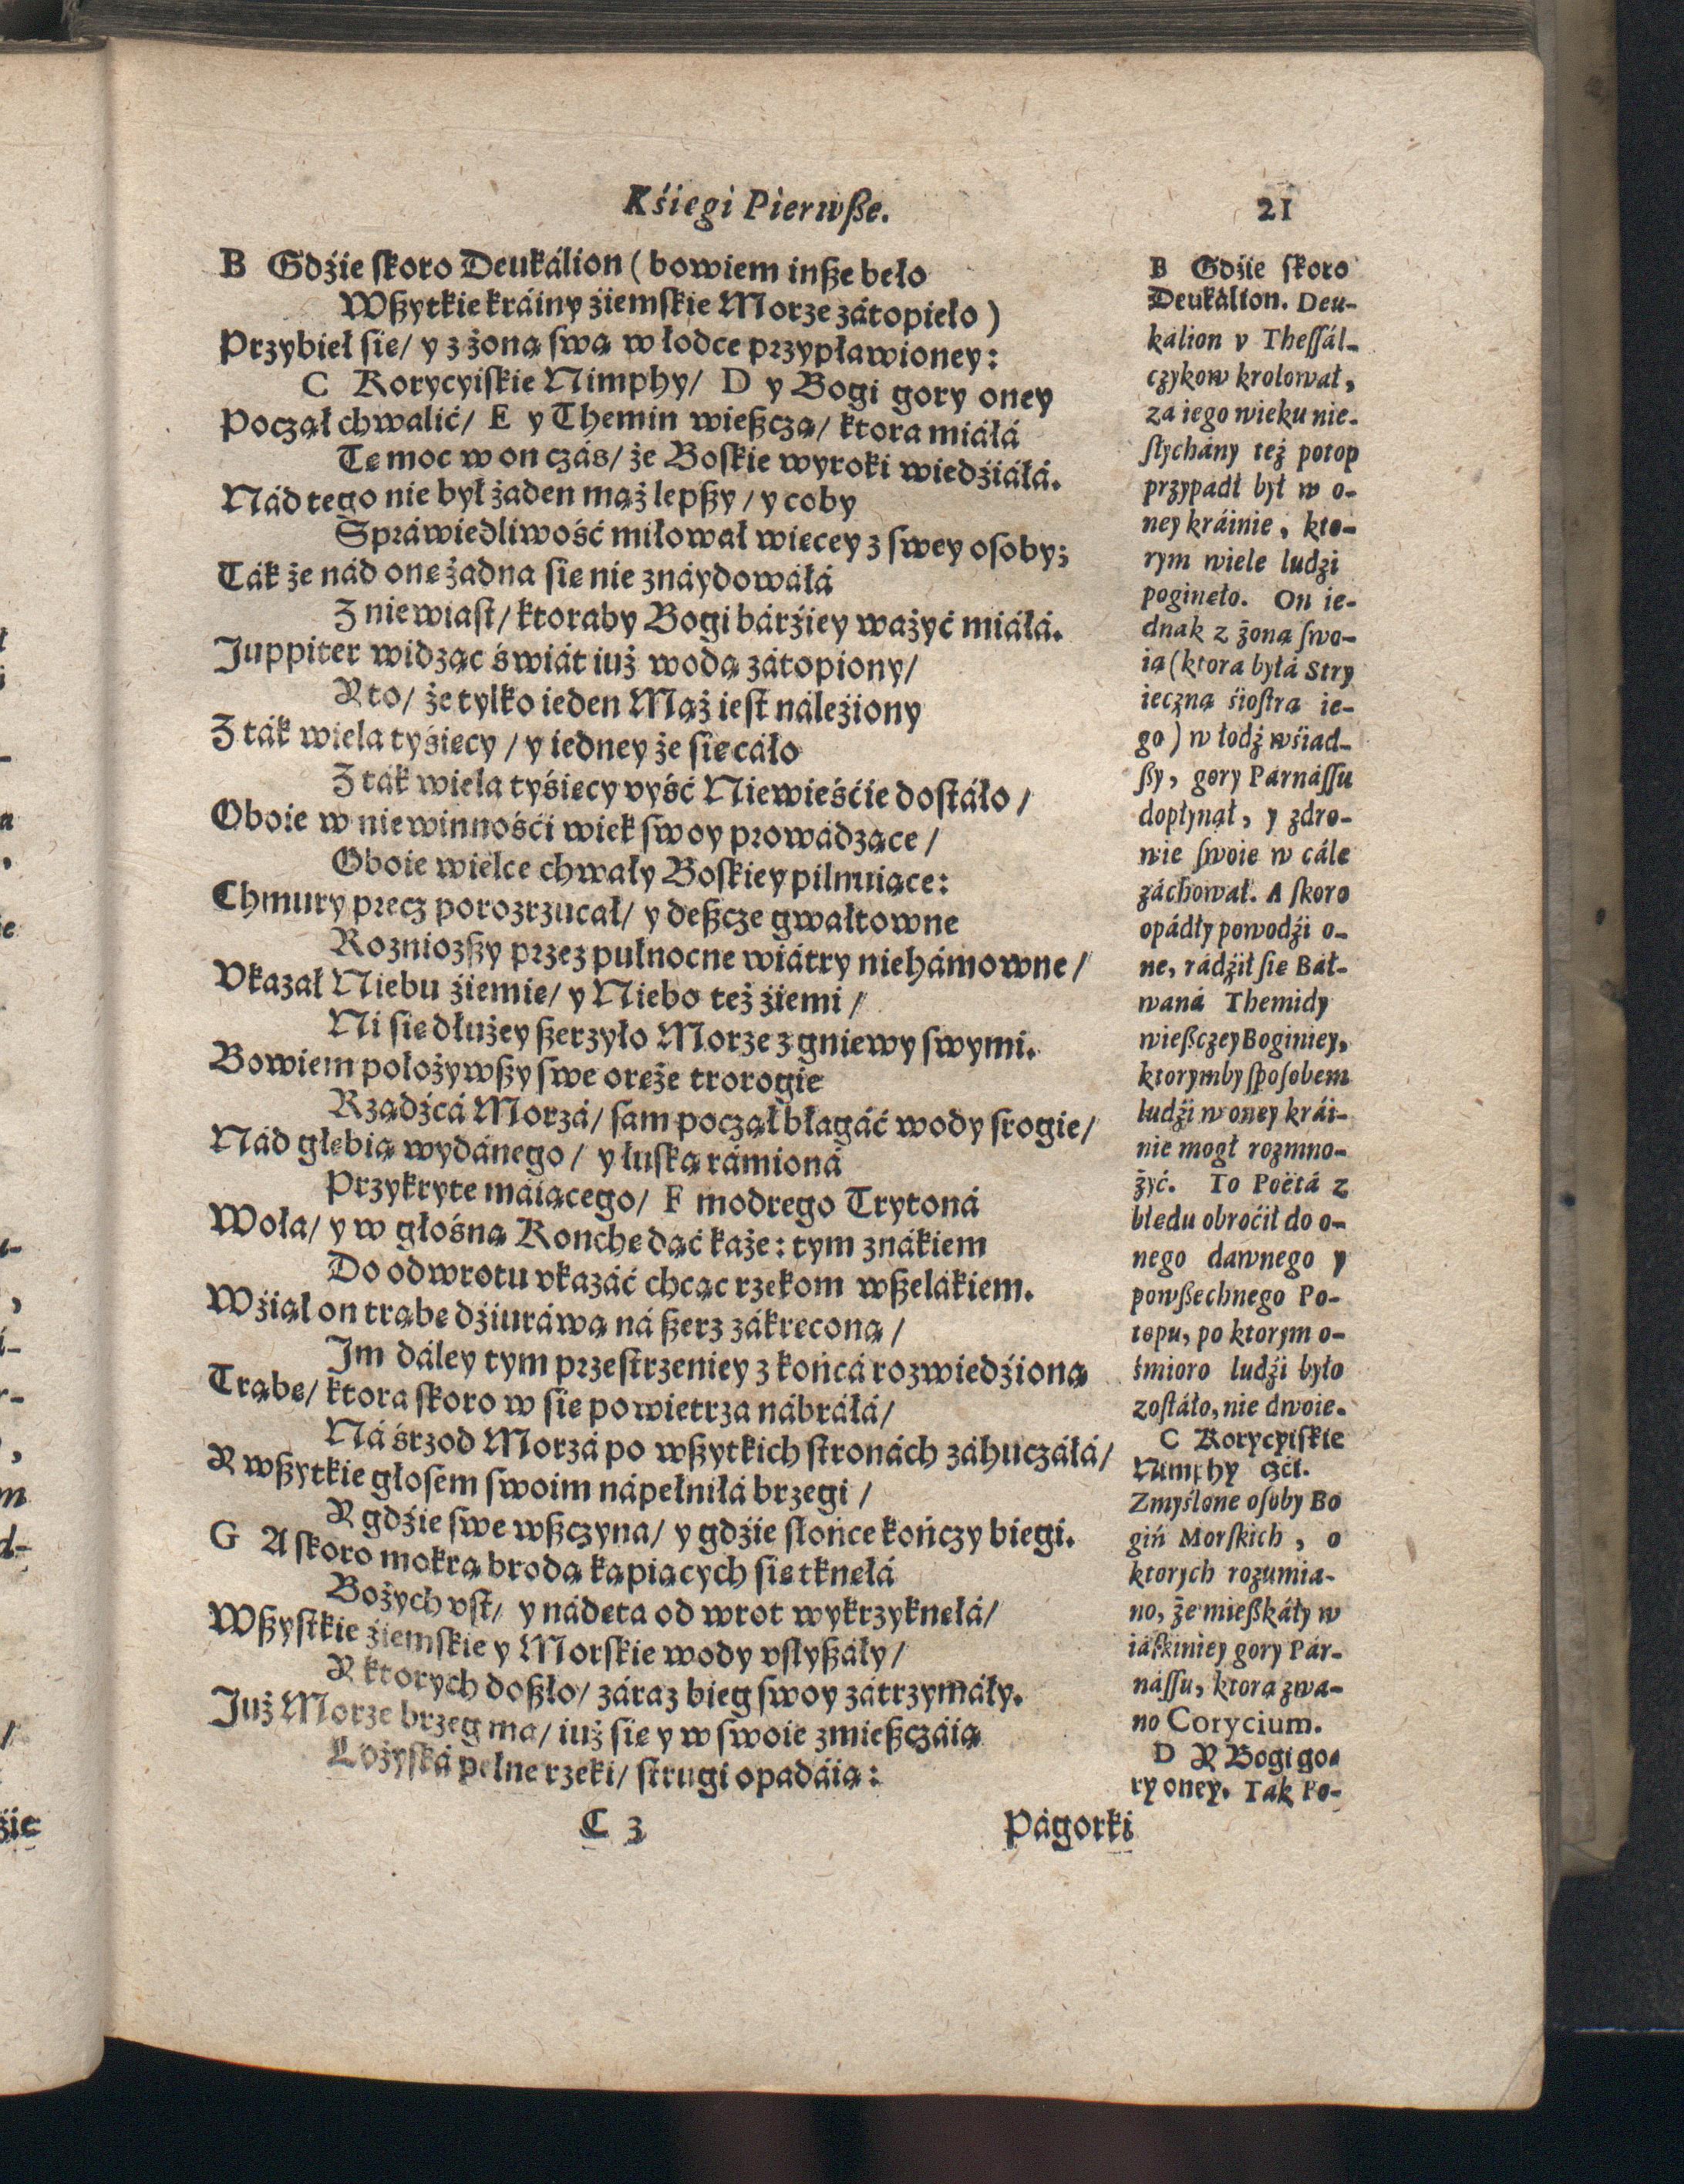 Kśiegi Pierwße.
21
B Gdźie ſkoro Deukálion (bowiem inße beło
Wßytkie kráiny źiemſkie Morze zátopieło)
Przybieł ſie/ y z żoną ſwą w łodce przypławioney:
C Korycyiſkie Nimphy/ D y Bogi gory oney
Począł chwalić/ E y Themin wießczą/ ktora miáłá
Te moc w on czás/ że Boſkie wyroki wiedźiáłá.
Nád tego nie był żaden mąż lepßy/ y coby
Spráwiedliwość miłował wiecey z ſwey oſoby;
Ták że nád one żadna ſie nie znáydowáłá
Z niewiaſt/ ktoraby Bogi bárźiey ważyć miáłá.
Juppiter widząc świát iuż wodą zátopiony/
Y to/ że tylko ieden Mąż ieſt náleźiony
Z ták wiela tyśiecy/ y iedney że ſie cáło
Z ták wiela tyśiecy vyść Niewieśćie doſtáło/
Oboie w niewinnośći wiek ſwoy prowádzące/
Oboie wielce chwały Boſkiey pilnuiące:
Chmury precz porozrzucał/ y deßcze gwałtowne
Rozniozßy przez pułnocne wiátry niehámowne/
Vkazał Niebu źiemie/ y Niebo też źiemi/
Ni ſie dłużey ßerzyło Morze z gniewy ſwymi.
Bowiem położywßy ſwe oreże trorogie
Rządźcá Morzá/ ſam począł błagáć wody ſrogie/
Nád głebią wydánego/ y łuſką rámioná
Przykryte máiącego/ F modrego Trytoná
Woła/ y w głośną Konche dąć każe: tym znákiem
Do odwrotu vkazáć chcąc rzekom wßelákiem.
Wźiął on trąbe dźiuráwą ná ßerz zákreconą/
Im dáley tym przeſtrzeniey z końcá rozwiedźioną
Trąbe/ ktora ſkoro w ſie powietrza nábráłá/
Ná śrzod Morzá po wßytkich ſtronách záhuczáłá/
Y wßytkie głoſem ſwoim nápełniłá brzegi/
Y gdźie ſwe wßczyna/ y gdźie ſłońce kończy biegi.
G A ſkoro mokrą brodą kąpiących ſie tknełá
Bożych vſt/ y nádeta od wrot wykrzyknełá/
Wßyſtkie źiemſkie y Morſkie wody vſłyßáły/
Y ktorych doßło/ záraz bieg ſwoy zátrzymáły.
Już Morze brzeg ma/ iuż ſie y w ſwoie zmießczáią
Lożyſká pełne rzeki/ ſtrugi opadáią:
C 3
Págorki
B Gdźie ſkoro
Deukálion. Deu-
kálion v Theſſál-
czykow krolował,
za iego wieku nie-
ſłychány też potop
przypadł był w o-
ney kráinie, kto-
rym wiele ludzi
pogineło. On ie-
dnak z żoną ſwo-
ią (ktora byłá Stry
ieczną śioſtrą ie-
go) w łodź wśiad-
ßy, gory Párnáſſu
dopłynął, y zdro-
wie ſwoie w cále
záchował. A ſkoro
opádły powodźi o-
ne, rádźił ſie Báł-
waná Themidy
wießczey Boginiey,
ktorymby ſpoſobem
ludźi w oney krái-
nie mogł rozmno-
żyć. To Poëtá z
błedu obroćił do o-
nego dawnego y
powßechnego Po-
topu, po ktorym o-
śmioro ludźi było
zoſtáło, nie dwoie.
C Korycyiſkie
Nimphy czći.
Zmyślone oſoby Bo
giń Morſkich, o
ktorych rozumia-
no, że mießkáły w
iáſkiniey gory Pár-
náſſu, ktorą zwa-
no Corycium.
D Y Bogi go-
ry oney. Ták Po-